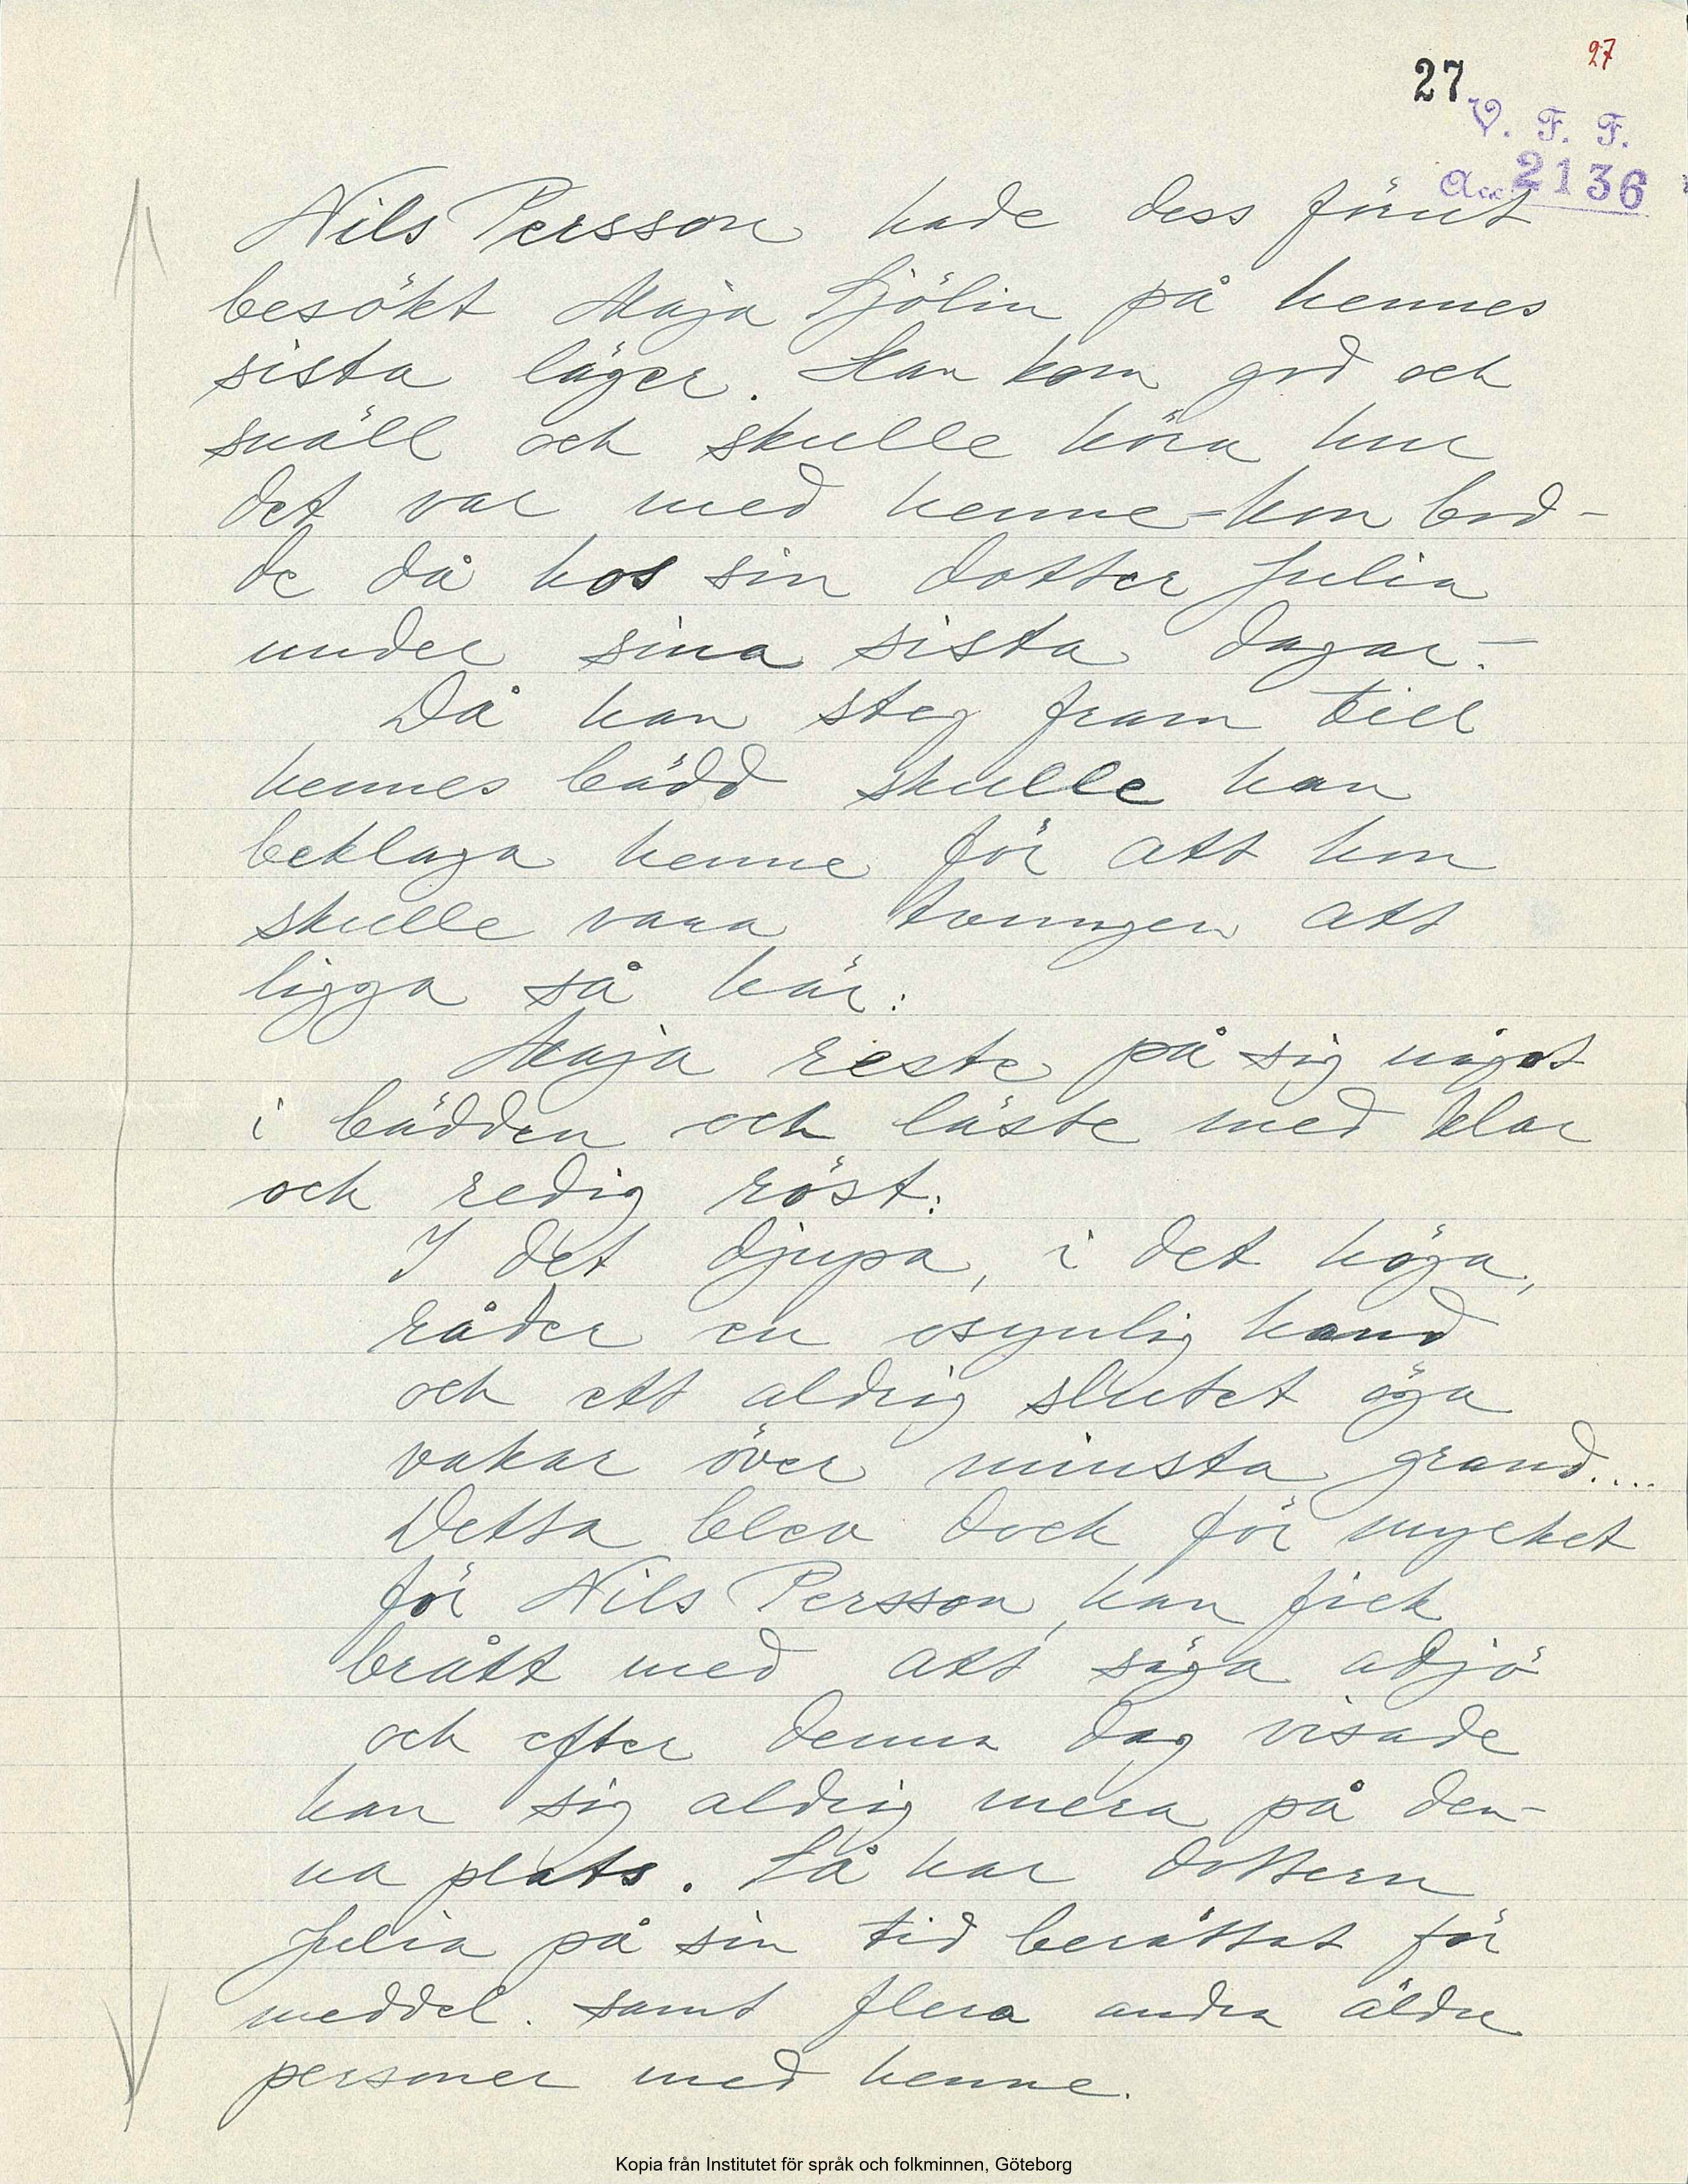 27
27
V. F. F.
Acc. 2136
Nils Persson hade dess förut
besökt Maja Sjölin på hennes
sista läger. Han kom god och
snäll och skulle höra hur
det var med henne - hon bod-
de då hos sin dotter Julia
under sina sista dagar. -
Då han steg fram till
hennes bädd skulle han
beklaga henne för att hon
skulle vara tvungen att
ligga så här.
Maja reste på sig något
i bädden och läste med klar
och redig röst:
I det djupa, i det höga,
råder en osynlig hand
och ett aldrig slutet öga
vakar över minsta grand....
Detta blev dock för mycket
för Nils Persson, han fick
brått med att säga adjö
och efter denna dag visade
han sig aldrig mera på den-
na plats. Så har dottern
Julia på sin tid berättat för
meddel. samt flera andra äldre
personer med henne.
Kopia från Institutet för språk och folkminnen, Göteborg